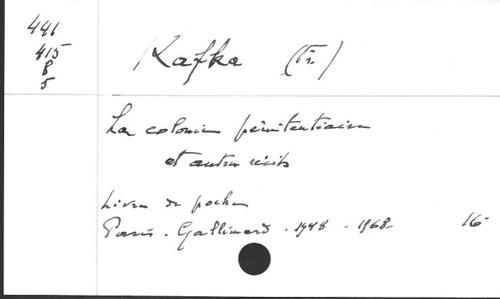 441
415
8
5
Kafka (Fr.)
La colonie pénitentiaire
et autres récits
Livre de poche
Paris. Gallimard. 1948 - 1968 16